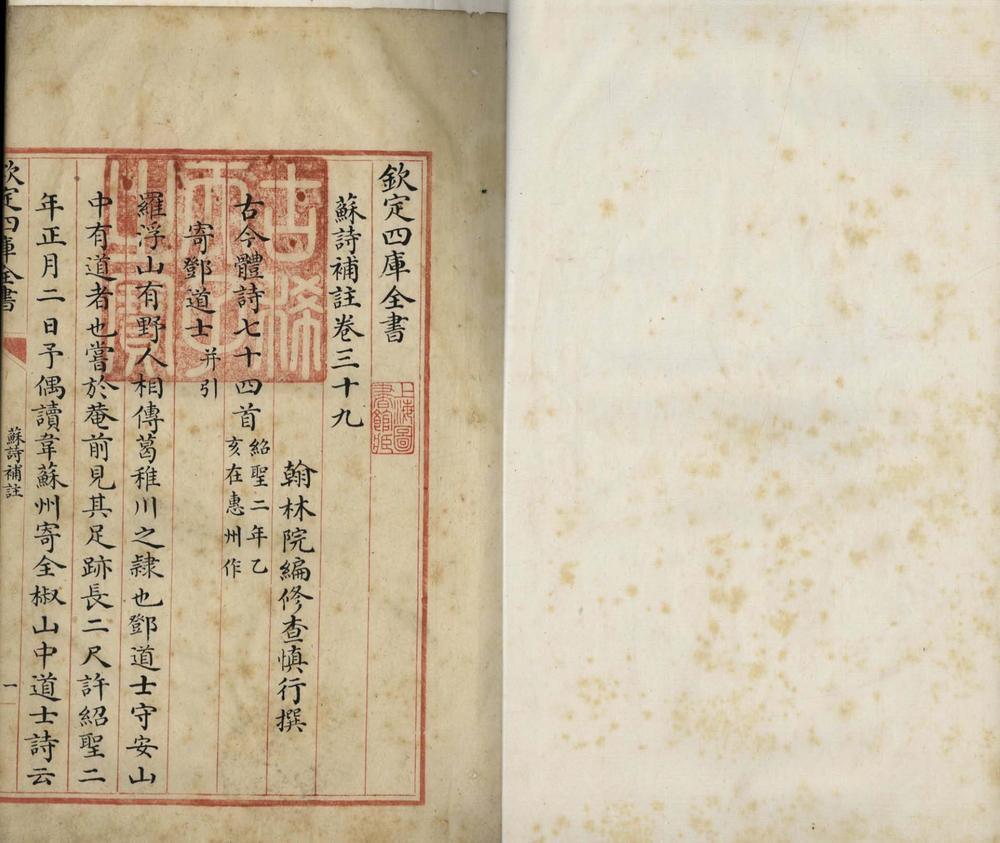 欽定四庫全書
蘇詩補註卷三十九
翰林院編修查慎行撰
古今體詩七十四首
紹聖二年乙
亥在惠州作
寄鄧道士
并引
羅浮山有野人相傳葛稚川之隷也鄧道士守安山
中有道者也嘗於菴前見其足跡長二尺許紹聖二
年正月二日予偶讀韋蘇州寄全椒山中道士詩云
欽定四庫全書
蘇詩補註
一
古稀天子之寳
上海圖書館臧